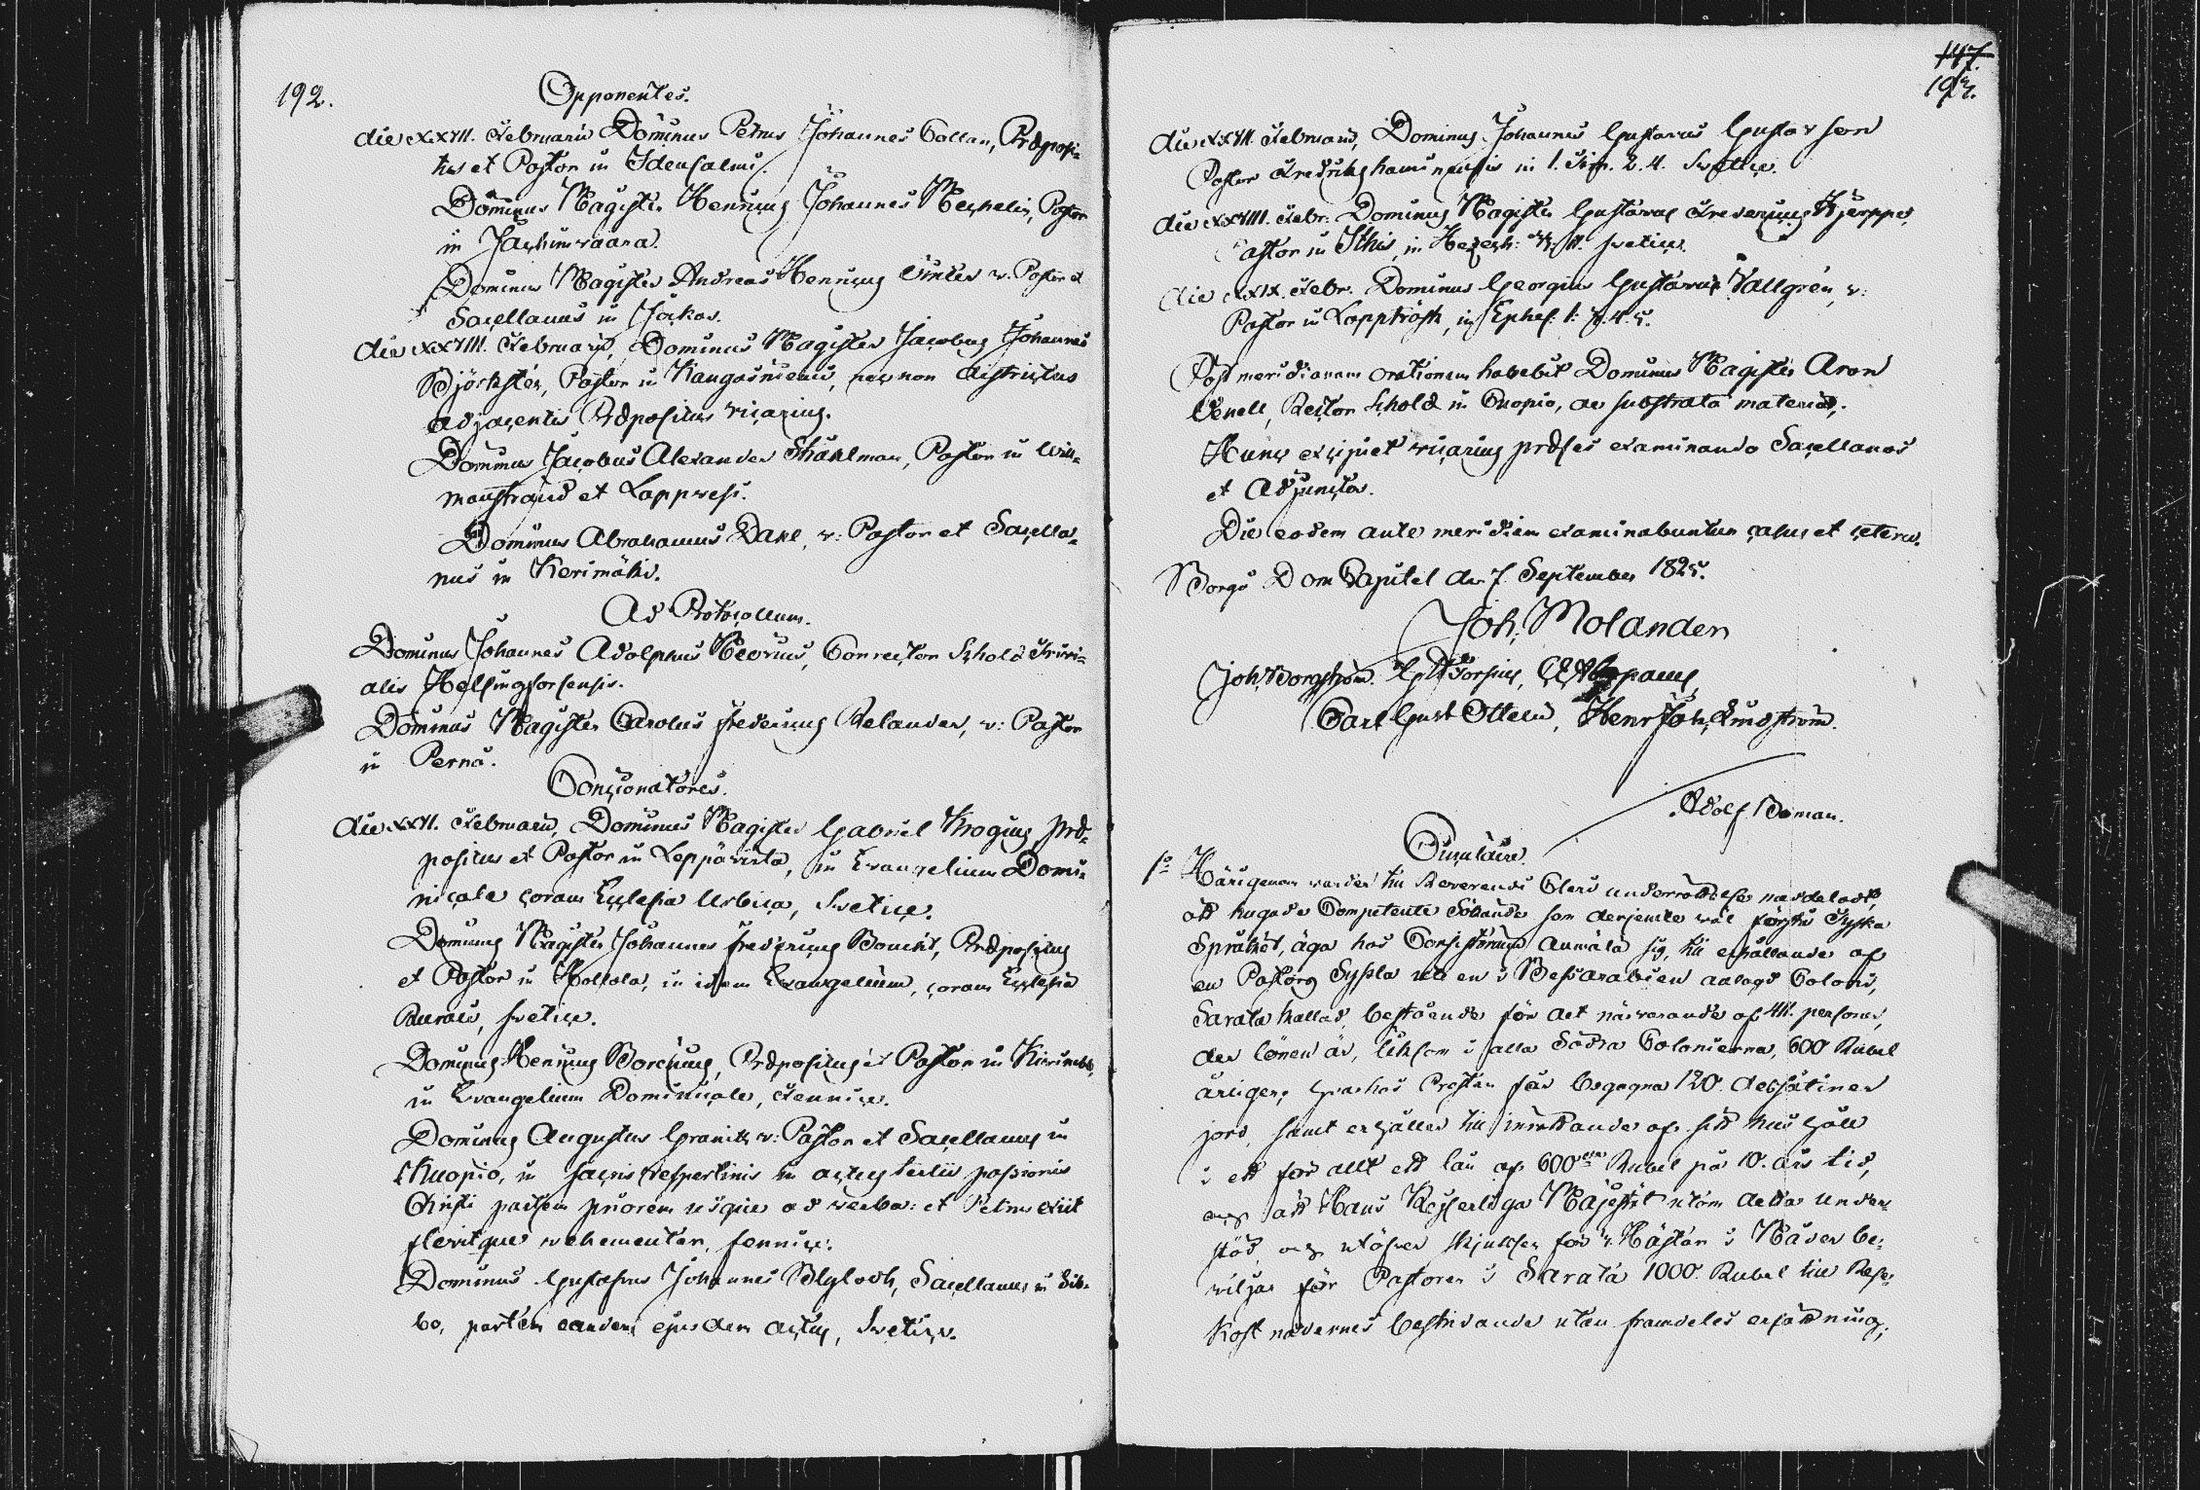 192.
Opponentes.
die XXVII. Februarii Dominus Petrus Johannes Collan, Præposi-
tus et Pastor in Idensalmi.
Dominus Magister Henricus Johannes Mechelin, Pastor
in Jackimvaara.
Dominus Magister Andreas Henricus v. Pastor et
Sacellanus in Jockas.
die XXVIII. Februarii, Dominus Magister Jacobus Johannes
Björkstén, Pastor in Kangasniemi, nec non districtus
adjacentis Præpositus vicarius.
Dominus Jacobus Alexander Ståhlman, Pastor in Will-
manstrand et Lappvesi.
Dominus Abrahamus Dahl, v: Pastor et Sacella-
nus in Kerimäki.
Ad Protocollum.
Dominus Johannes Adolphus Conrector Scholæ Trivi-
alis Helsingforsensis.
Dominus Magister Carolus Fredericus Relander, v: Pastor
in Pernå.
Concionatores.
die XXVI. Februarii, Dominus Magister Gabriel Krogius, Præ-
positus et Pastor in Leppävirta, in Evangelium Domi-
nicale coram Ecclesia Urbica, Svetice.
Dominus Magister Johannes Fredericus Boucht, Præpositus
et Pastor in Hollola, in idem Evangelium, coram Ecclesia
Rurali, Svetice.
Dominus Henricus Borenius, Præpositus et Pastor in
in Evangelium Dominicale, Fennice.
Dominus Augustus Granith v: Pastor et Sacellanus in
Kuopio, in sacris vespertinis in actus tertii passionis
Christi partem priorem usque ad verba: et Petrus exiit
flevitque vehementer, fennice.
Dominus Gustafvus Johannes Blyloch, Sacellanus in Sib-
bo, partem eandem ejusdem actus, Svetice.
147.
193.
die XXVII. Februarii, Dominus Johannes Gustavus Gustavson
Pastor Fredrikshamnensis in 1. Tim. 2. 4. Svetice.
die XXVIII. Febr: Dominus Magister Gustavus Fredericus Hjerppe,
Pastor in Ithis, in Svetice.
die XXIX. Febr. Dominus Georgius Gustavus Vallgrén, v:
Pastor in Lappträsk, in Ephes: 1: 3. 4. 5.
Postmeridianam orationem habebit Dominus Magister Aron
Rector Scholæ in Cuopio, de substrata materia.
Hunc excipiet vicarius præses examinando Sacellanos
et Adjunctos.
Die eodem ante meridiem examinabuntur casus et cetera.
Borgå DomCapitel den 7. September 1825.
Joh. Molander
Joh. Borgström.
Carl Gust Ottelin, Henr Joh. Lindström.
Adolf Boman.
Circulaire.
1o Härigenom varder till Reverendi Cleri underrättelse meddeladt,
att hugade Competente Sökande som derjemte väl förstå Tyska
Språket, äga hos Consistorium anmäla sig, till erhållande af
en Pastors Syssla uti en i Bessarabien anlagd Coloni,
Sarata kallad, bestående för det närvarande af 411. personer,
der lönen är, liksom i alla Södra Colonierna, 600 Rubel
årligen; hvarhos Presten får begagna 120. dessätiner
jord, samt erhåller till inrättande af sitt hushåll
i ett för allt ett lån af 600 Rubel på 10. års tid,
och att Hans Kejserliga Majestät utom detta under-
stöd och utöfver skjutsen för Hästar i Nåder be-
viljat för Pastoren i Sarata 1000. Rubel till Rese-
kostnadernes bestridande utan framdeles ersättning;